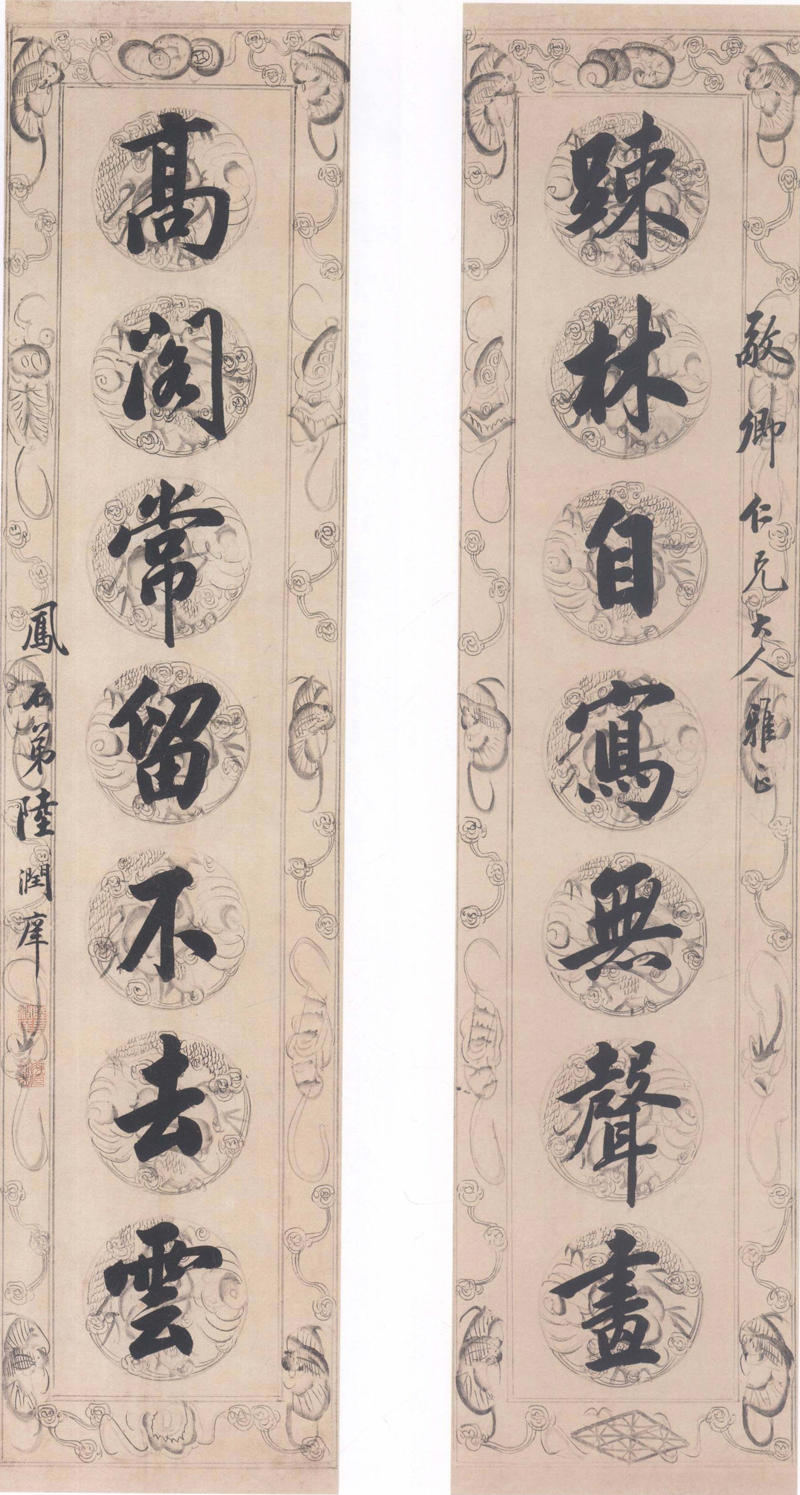 敬卿仁兄大人雅正
踈林自寫無聲畫
高閣常留不去雲
鳳石弟陸潤庠